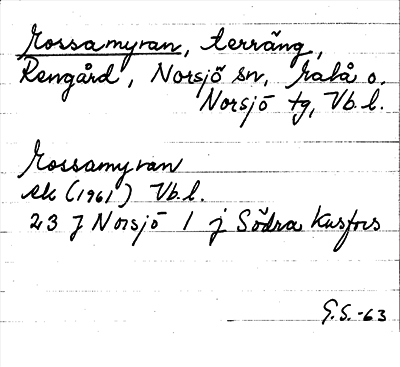 Rossamyran, terräng,
Rengård, Norsjö sn, Malå o.
Norsjö tg, Vb.l.
Rossamyran
ek (1961) Vb.l.
23 J Norsjö 1 j Södra Kusfors
G.S.-63